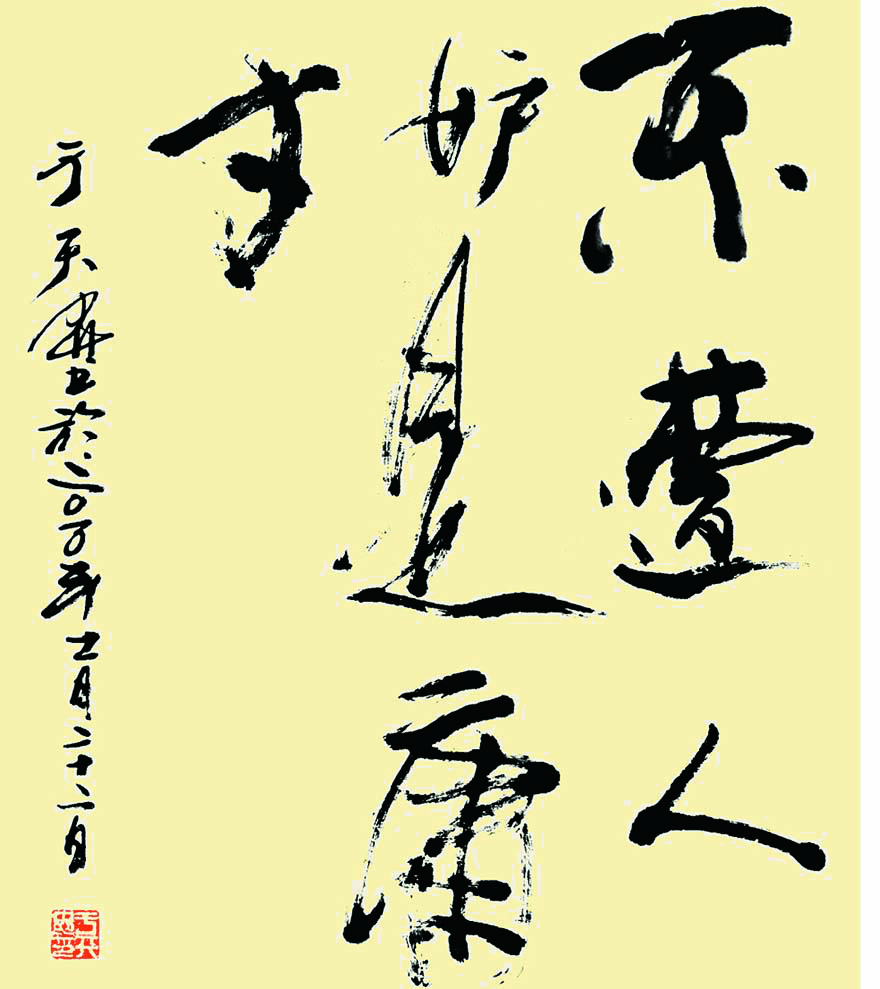 不遭人
妒是庸
才
于天 书於二〇〇 年十一月二十二日